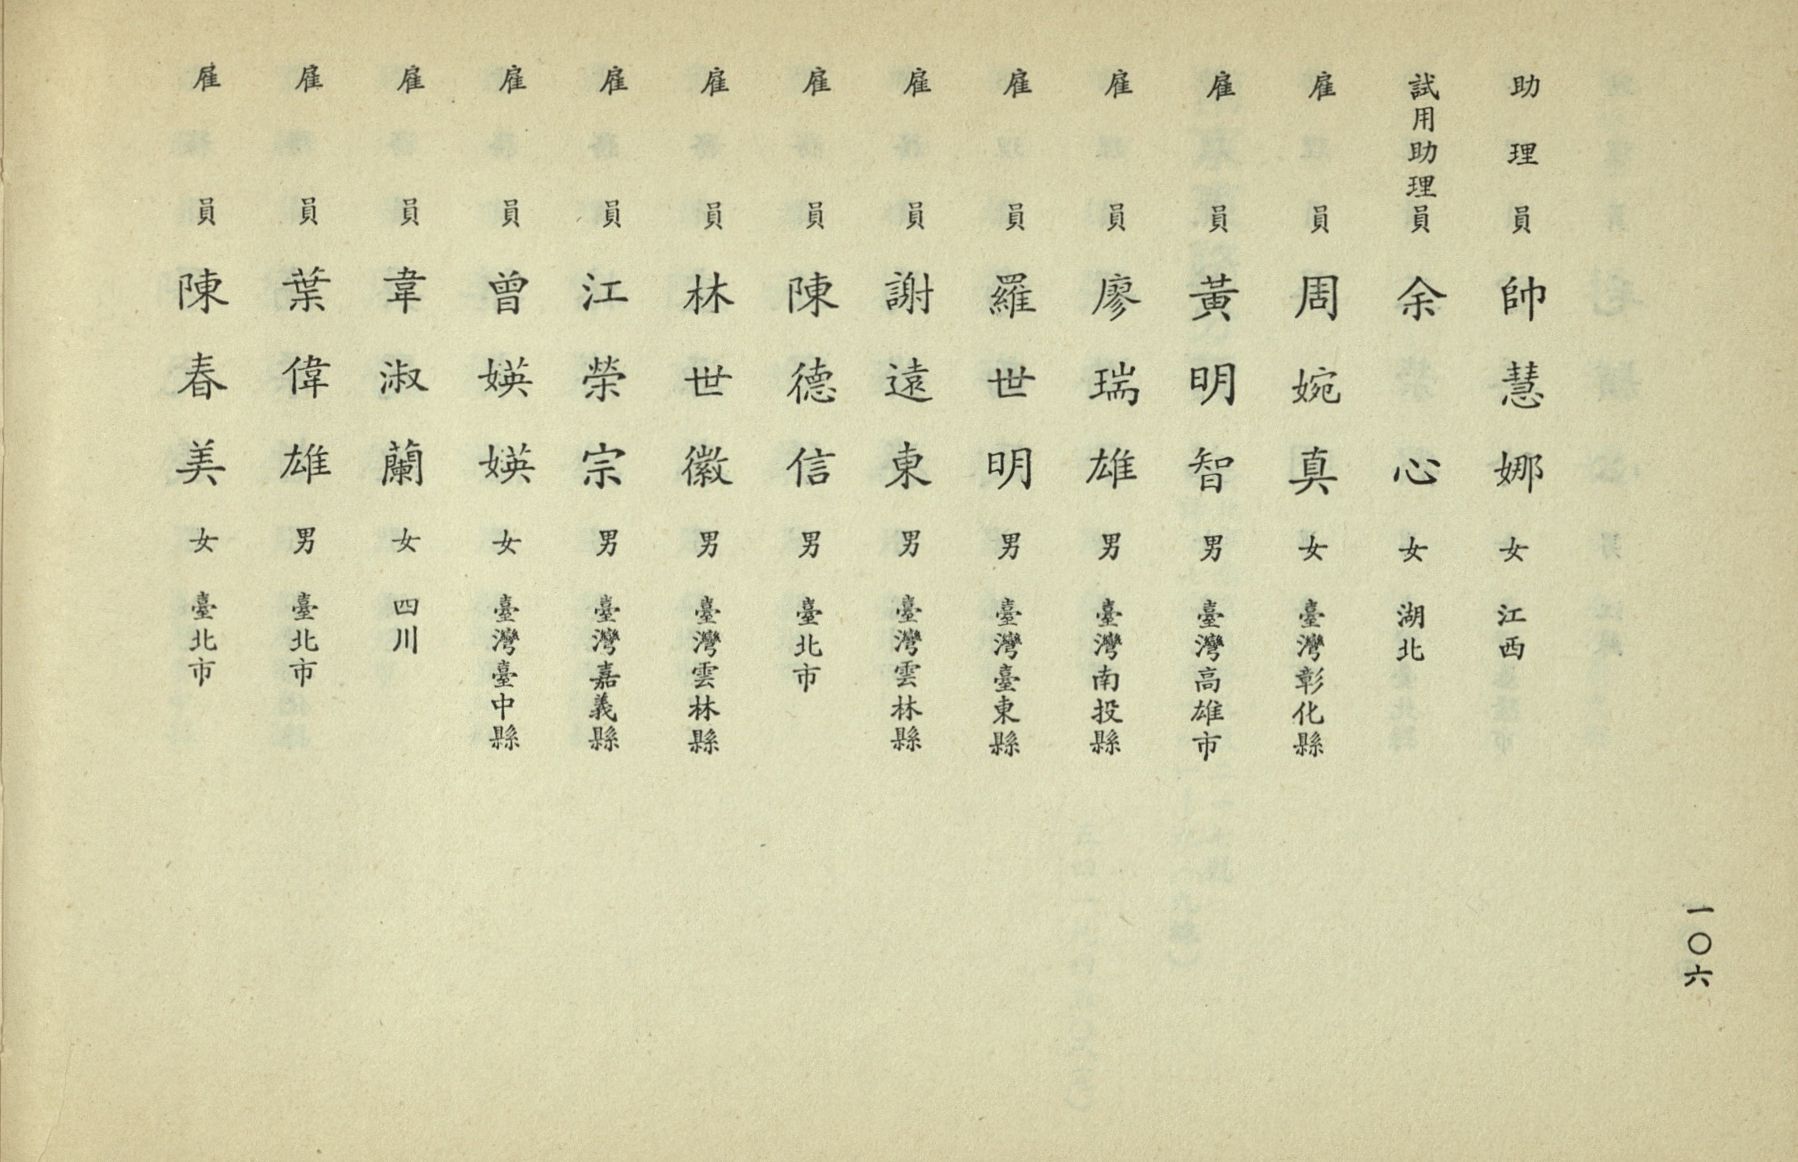 助理員 帥慧娜 女 江西
試用助理員 余心 女 湖北
雇員 周婉真 女 臺灣彰化縣
雇員 黃明智 男 臺灣高雄市
雇員 廖瑞雄 男 臺灣南投縣
雇員 羅世明 男 臺灣臺東縣
雇員 謝遠東 男 臺灣雲林縣
雇員 陳德信 男 臺北市
雇員 林世徽 男 臺灣雲林縣
雇員 江榮宗 男 臺灣嘉義縣
雇員 曾媖媖 女 臺灣臺中縣
雇員 韋淑蘭 女 四川
雇員 葉偉雄 男 臺北市
雇員 陳春美 女 臺北市
一〇六